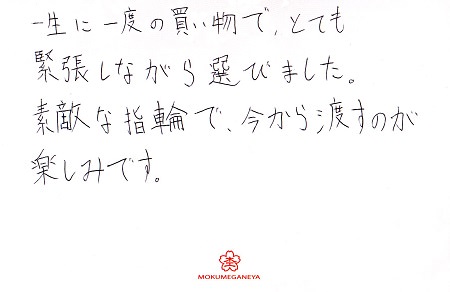 一生に一度の買い物で、とても
緊張しながら選びました。
素敵な指輪で、今から渡すのが
楽しみです。
MOKUMEGANEYA